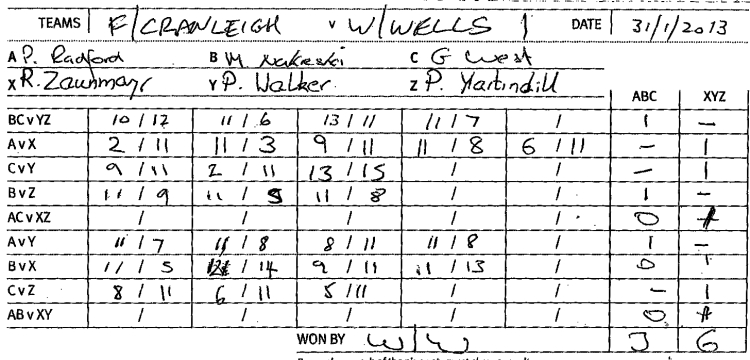 TEAMS F/CRANLEIGH v W/WELLS 1 DATE 31/1/2013
A P. Radford B M Nakreski C G West
X R. Zaunmayr Y P. Walker Z P. Martindill ABC XYZ
BC v YZ 10 / 12 11 / 6 13 / 11 11 / 7 / 1 –
A v X 2 / 11 11 / 3 9 / 11 11 / 8 6 / 11 – 1
C v Y 9 / 11 2 / 11 13 / 15 / / – 1
B v Z 11 / 9 11 / 5 11 / 8 / / 1 –
AC v XZ / / / / / 0
A v Y 11 / 7 11 / 8 8 / 11 11 / 8 / 1 –
B v X 11 / 5 12 / 14 9 / 11 11 / 13 / 0 1
C v Z 8 / 11 6 / 11 5 / 11 / / – 1
AB v XY / / / / / 0
WON BY W/W 3 6